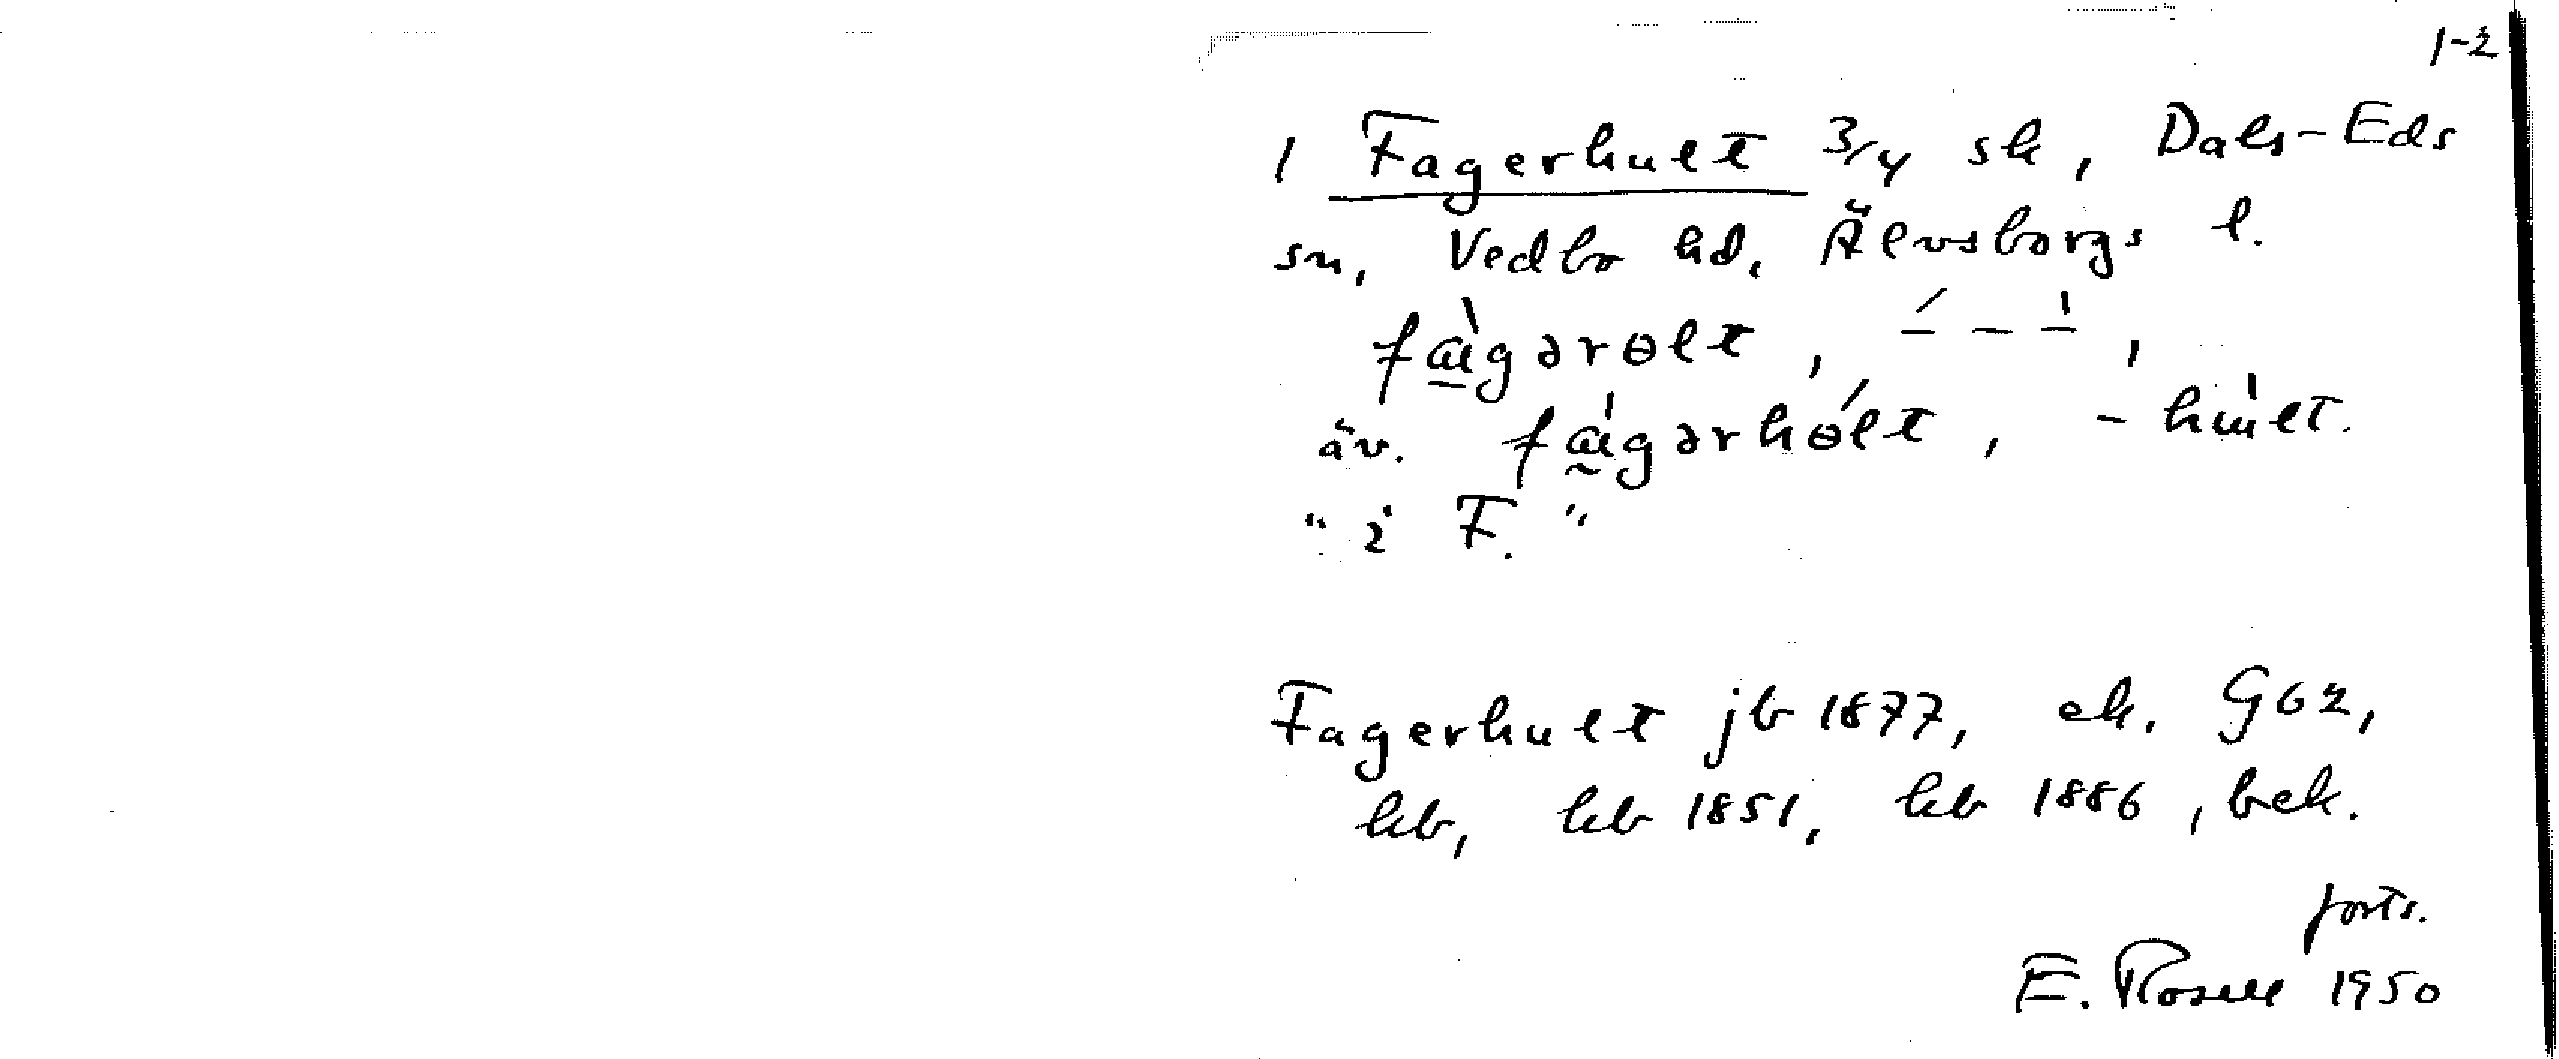 1-2
1 Fagerhult 3/4 sk, Dals-Eds
sn, Vedbo hd, Älvsborgs l.
fàgərɵlt, ´ – – ˈ,
äv. fágərhɵ́lt, -hult.
"i F."
Fagerhult jb 1877, ek. G62,
kb, kb 1851, kb 1886, bek.
forts.
E. Rosell 1950